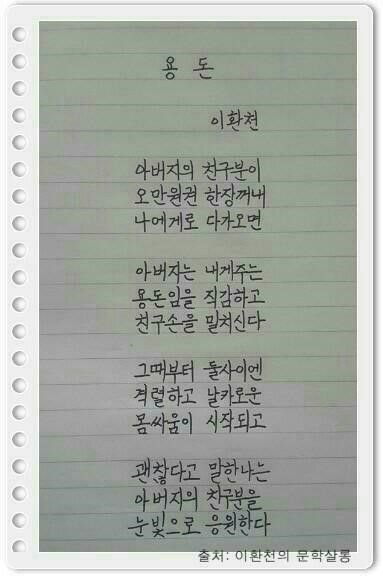 용 돈
이환천
아버지의 친구분이
오만원권 한장꺼내
나에게로 다가오면
아버지는 내게주는
용돈임을 직감하고
친구손을 밀치신다
그때부터 둘사이엔
격렬하고 날카로운
몸싸움이 시작되고
괜찮다고 말한나는
아버지의 친구분을
눈빛으로 응원한다
출처: 이환천의 문학살롱